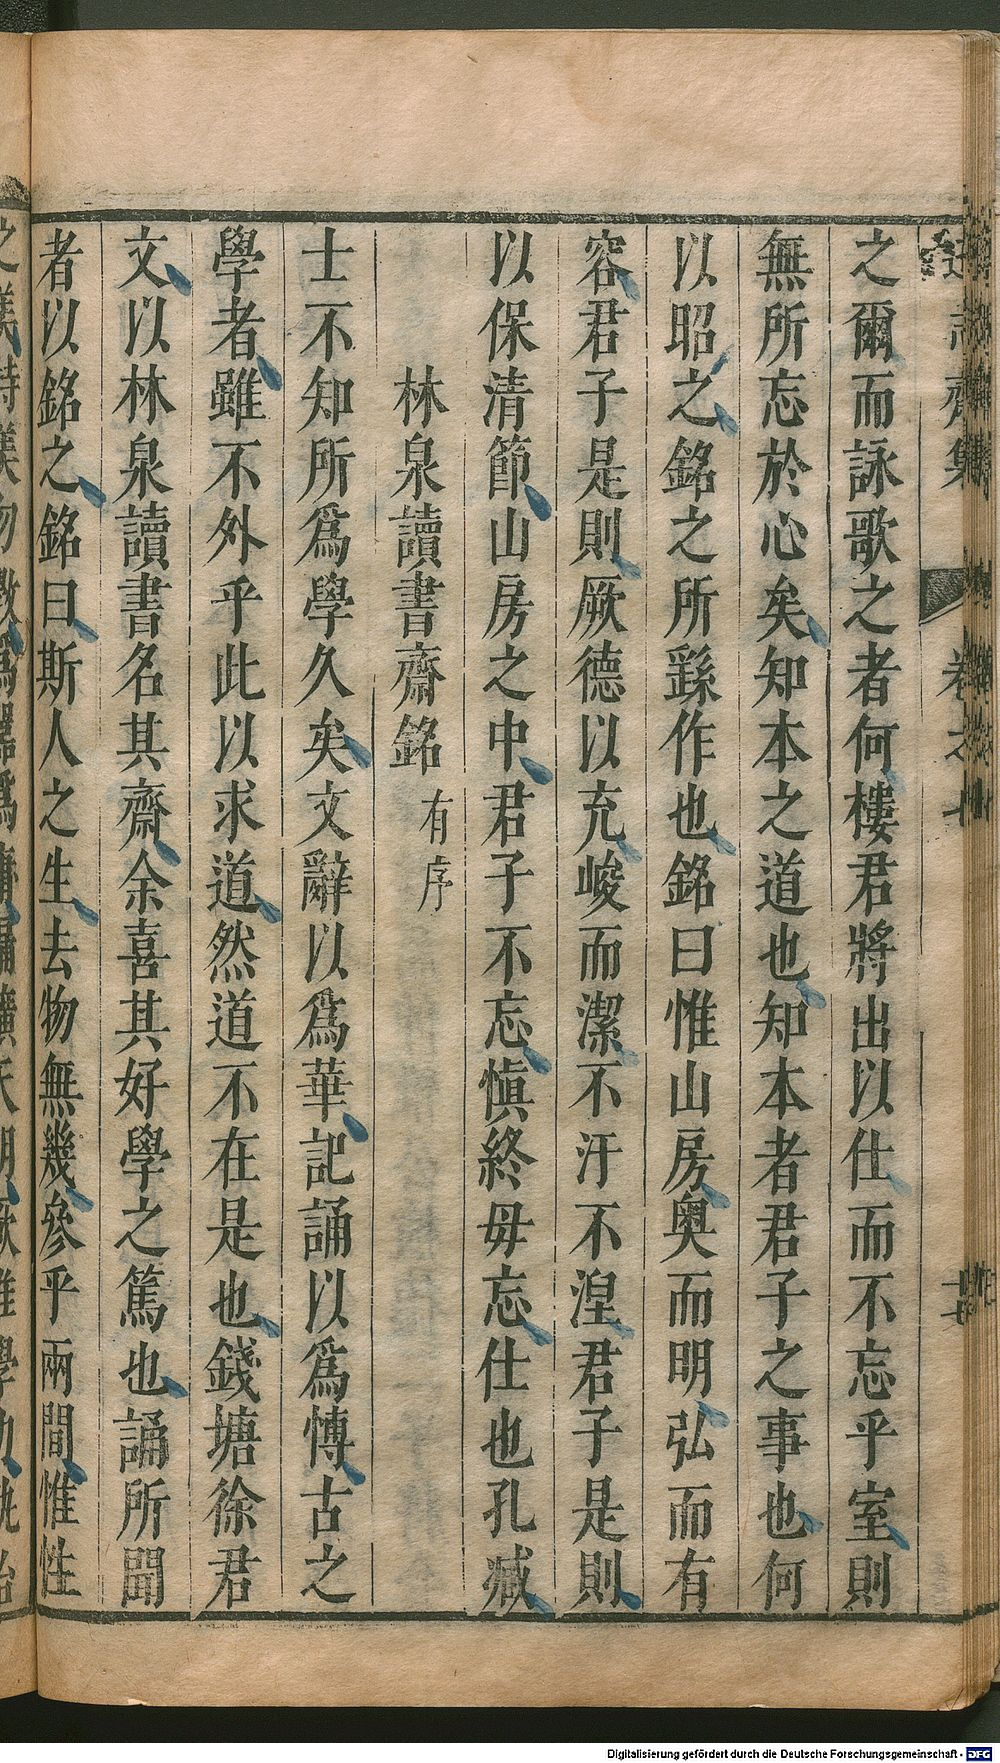 遜志齋集 卷之七
之爾而詠歌之者何樓君將出以仕而不忘乎室則
無所忘於心矣知本之道也知本者君子之事也何
以昭之銘之所繇作也銘曰惟山房奧而明弘而有
容君子是則厥德以充峻而潔不汙不湼君子是則
以保清節山房之中君子不忘愼終毋忘仕也孔臧
林泉讀書齋銘 有序
士不知所爲學久矣文辭以爲華記誦以爲慱古之
學者雖不外乎此以求道然道不在是也錢塘徐君
文以林泉讀書名其齋余喜其好學之篤也誦所聞
者以銘之銘曰斯人之生去物無幾參乎兩間惟性
Digitalisierung gefördert durch die Deutsche Forschungsgemeinschaft - DFG